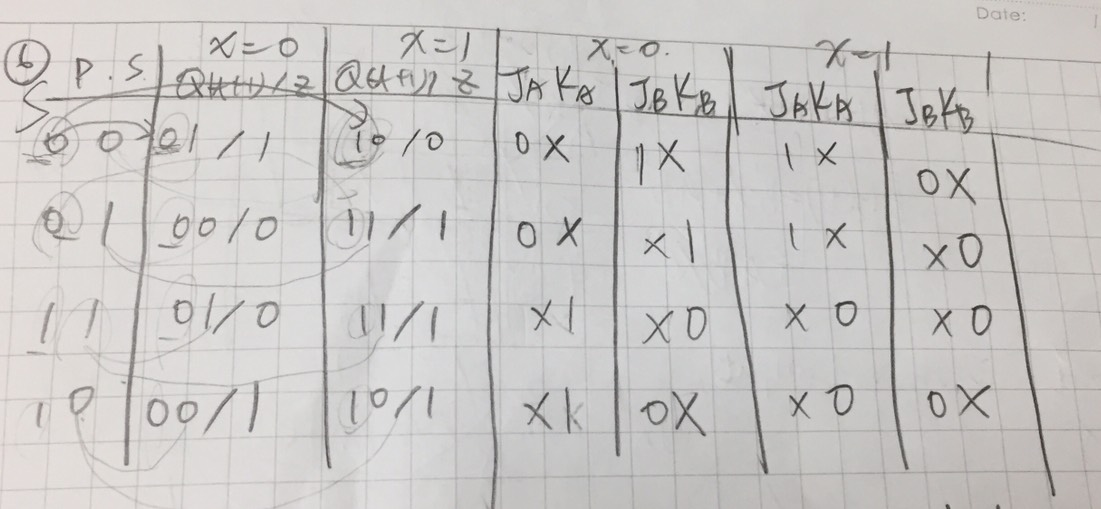 Date:
⑥ P.S. x=0 x=1 x=0. x=1
Q(t+1)/Z Q(t+1)/Z JA KA JB KB JA KA JB KB
0 0 01/1 10/0 0 X 1 X 1 X 0 X
0 1 00/0 11/1 0 X X 1 1 X X 0
1 1 01/0 11/1 X 1 X 0 X 0 X 0
1 0 00/1 10/1 X 0 X X 0 0 X